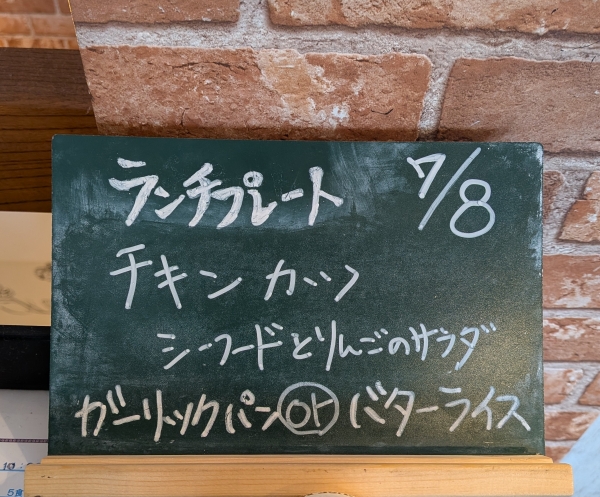 ランチプレート 7/8
チキンカツ
シーフードとりんごのサラダ
ガーリックパン or バターライス